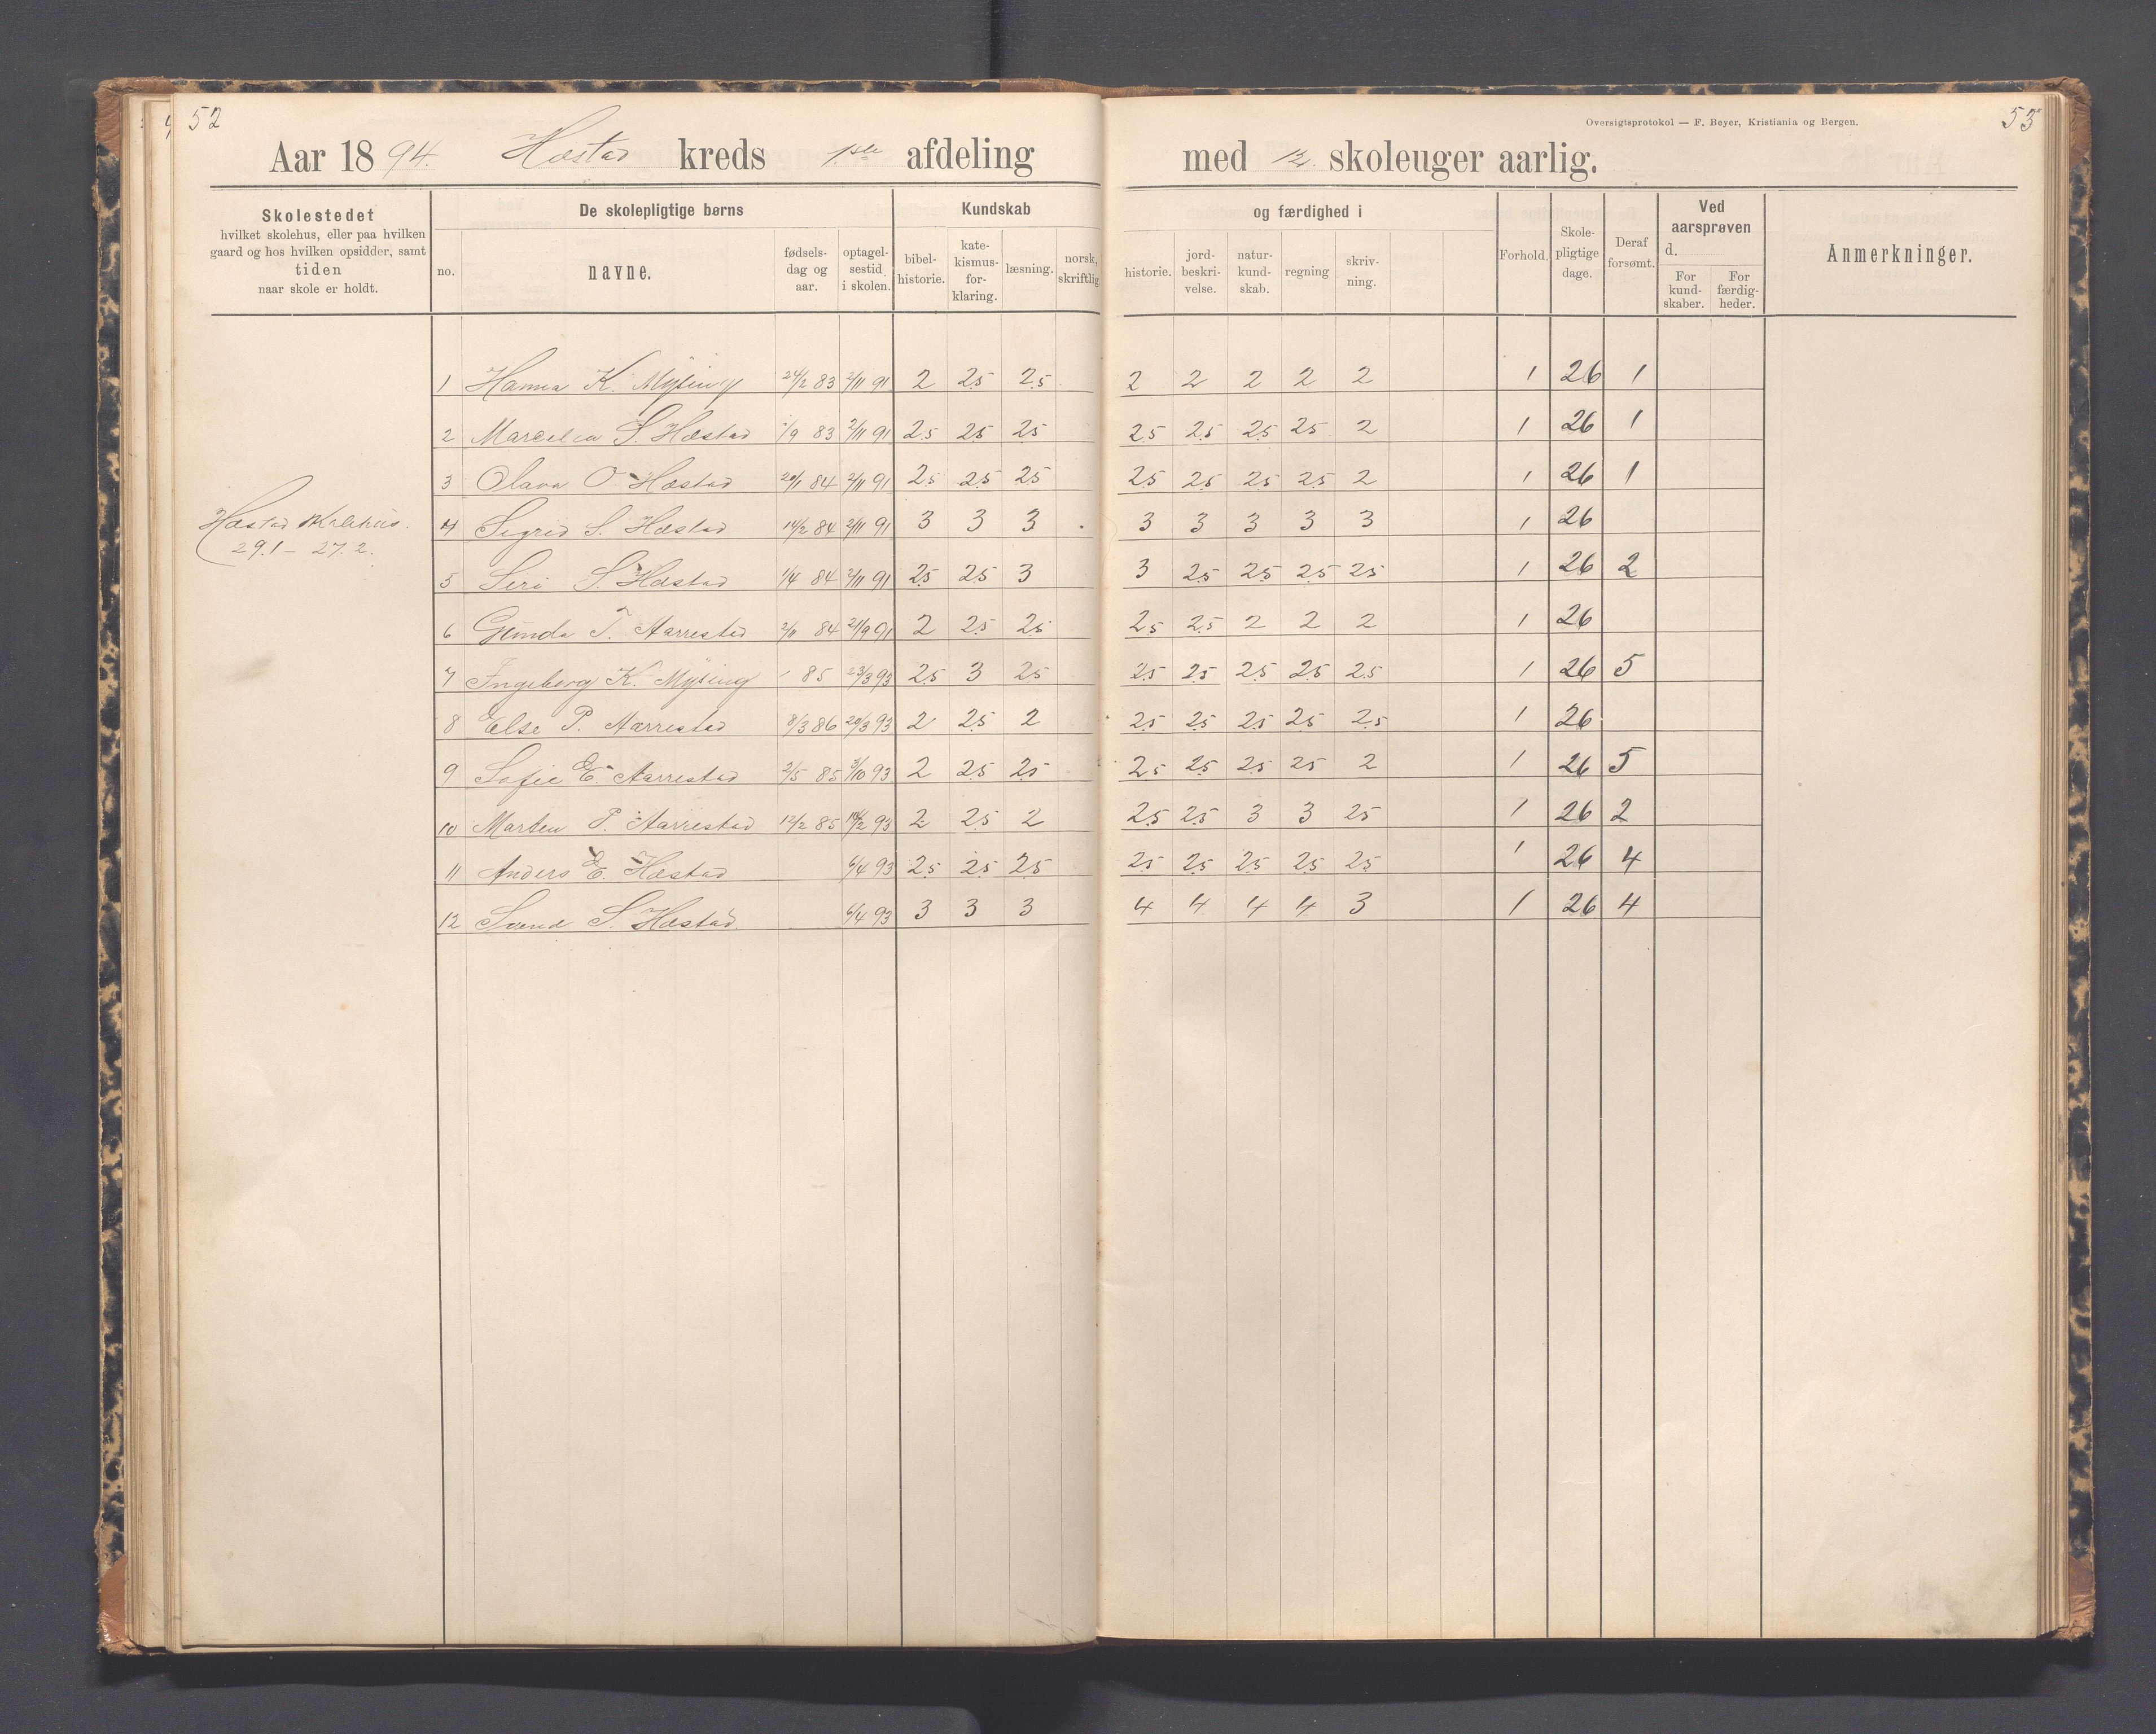 52
53
Oversigtsprotokol — F. Beyer, Kristiania og Bergen.
Aar 1894. Hæstad kreds 1ste afdeling med 12 skoleuger aarlig.
Skolestedet
hvilket skolehus, eller paa hvilken
gaard og hos hvilken opsidder, samt
tiden
naar skole er holdt.
De skolepligtige børns
no.
navne.
fødsels-
dag og
aar.
optagel-
sestid
i skolen.
Kundskab
bibel-
historie.
kate-
kismus-
for-
klaring.
læsning.
norsk,
skriftlig
og færdighed i
historie.
jord-
beskri-
velse.
natur-
kund-
skab.
regning
skriv-
ning.
Forhold.
Skole-
pligtige
dage.
Deraf
forsømt.
Ved
aarsprøven
d.
For
kund-
skaber.
For
færdig-
heder.
Anmerkninger.
Hæstad skolehus.
29.1 – 27.2.
1 Hanna K. Mysing 24/2 83 2/11 91 2 2.5 2.5 2 2 2 2 2 1 26 1
2 S. Hæstad /9 83 2/11 91 2.5 2.5 2.5 2.5 2.5 2.5 2.5 2 1 26 1
3 Olava O. Hæstad 20/1 84 2/11 91 2.5 2.5 2.5 2.5 2.5 2.5 2.5 2 1 26 1
4 Sigrid S. Hæstad 14/2 84 2/11 91 3 3 3 3 3 3 3 3 1 26
5 Siri S. Hæstad 1/4 84 2/11 91 2.5 2.5 3 3 2.5 2.5 2.5 2.5 1 26 2
6 Gunda T. Aarrestad 2/11 84 21/9 91 2 2.5 2.5 2.5 2.5 2 2 2 1 26
7 Ingeborg K. Mysing 85 23/3 93 2.5 3 2.5 2.5 2.5 2.5 2.5 2.5 1 26 5
8 Else P. Aarrestad 8/3 86 20/3 93 2 2.5 2 2.5 2.5 2.5 2.5 2.5 1 26
9 Sofie E. Aarrestad 2/5 85 3/10 93 2 2.5 2.5 2.5 2.5 2.5 2.5 2 1 26 5
10 Marten P. Aarrestad 12/2 85 93 2 2.5 2 2.5 2.5 3 3 2.5 1 26 2
11 Anders E. Hæstad 6/4 93 2.5 2.5 2.5 2.5 2.5 2.5 2.5 2.5 1 26 4
12 Svend S. Hæstad 6/4 93 3 3 3 4 4 4 4 3 1 26 4